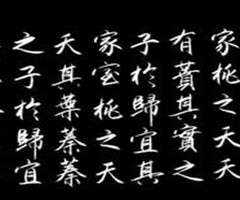 家桃之夭夭
有蕡其實之
子於歸宜其
家室桃之夭
夭其葉蓁蓁
之子於歸宜